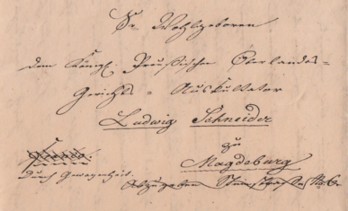 Sr Wohlgeboren
dem Königl. Preußische Oberlandes-
Gerichts - Auskultator
Ludwig Schneider
zu
Magdeburg
Durch Gewogenheit.
Abzugeben